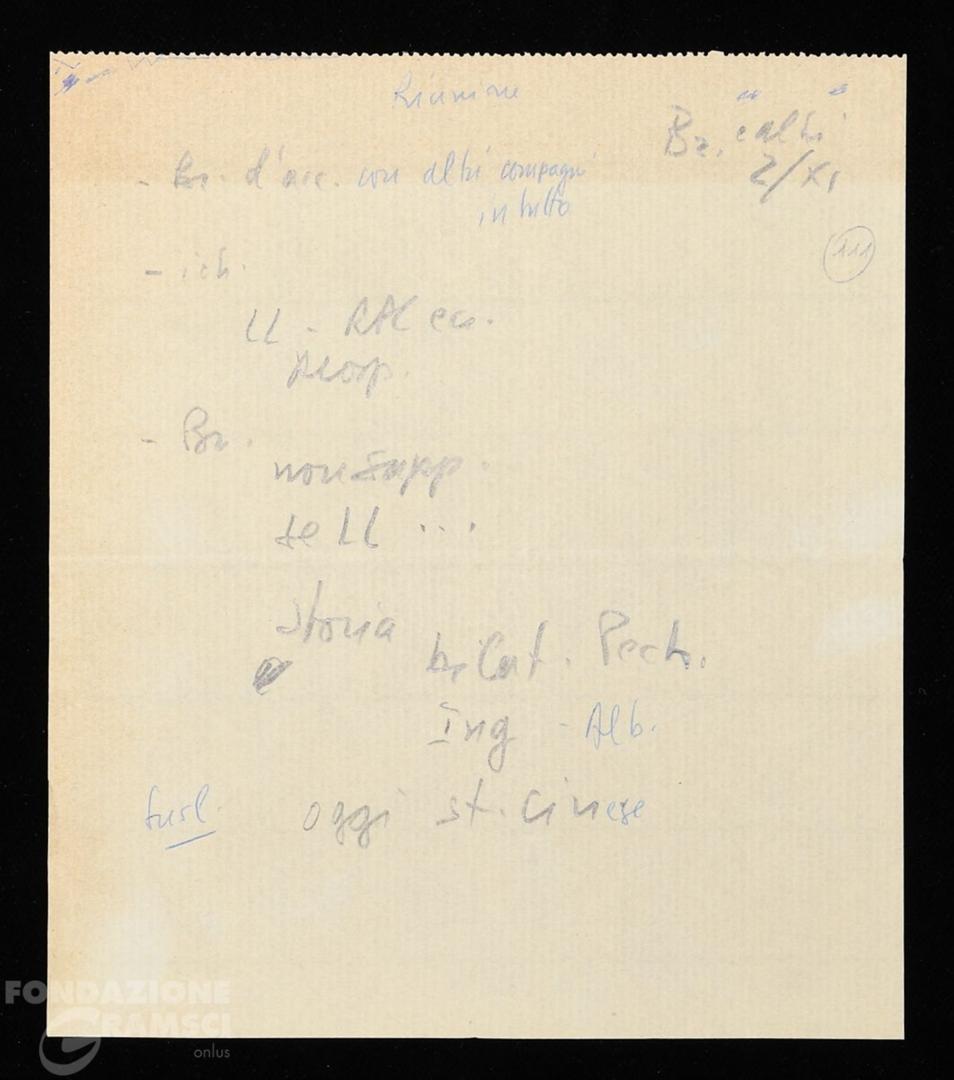 Riunione
Bz. e altri
2/XI
- Br. d'acc. con altri compagni
in tutto
111
- ich.
LL - RAL ecc.
- Br.
non supp.
se LL ...
storia
Cat. Pech.
Ing - Alb.
oggi st. cinese
FONDAZIONE
GRAMSCI
onlus